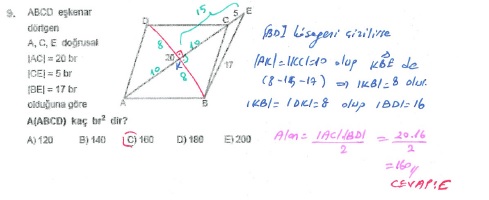 9. ABCD eşkenar
dörtgen
A, C, E doğrusal
|AC| = 20 br
|CE| = 5 br
|BE| = 17 br
olduğuna göre
A(ABCD) kaç br² dir?
A) 120 B) 140 C) 160 D) 180 E) 200
15
D C 5 E
8 10
20 K
10 8
17
A B
[BD] köşegeni çizilirse
|AK|=|KC|=10 olup KBE de
(8-15-17) ⇒ |KB|=8 olur.
|KB|=|DK|=8 olup |BD|=16
Alan = |AC|.|BD| / 2 = 20.16 / 2
= 160 //
CEVAP:E